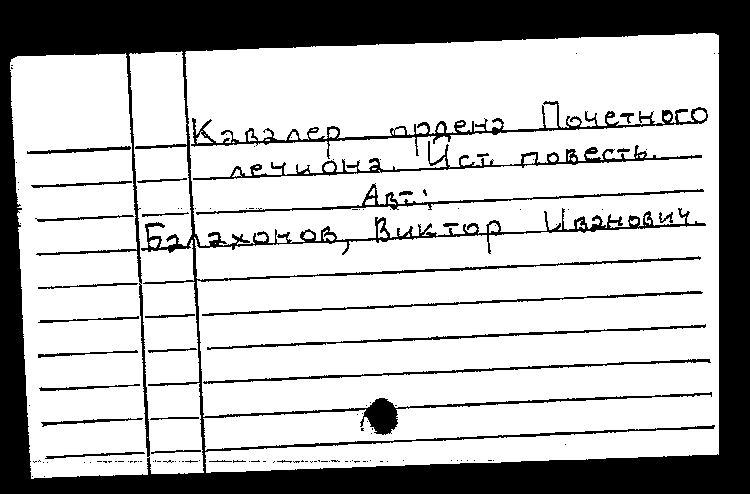 Кавалер ордена Почетного
легиона. Ист. повесть.
Авт:
Балахонов, Виктор Иванович.